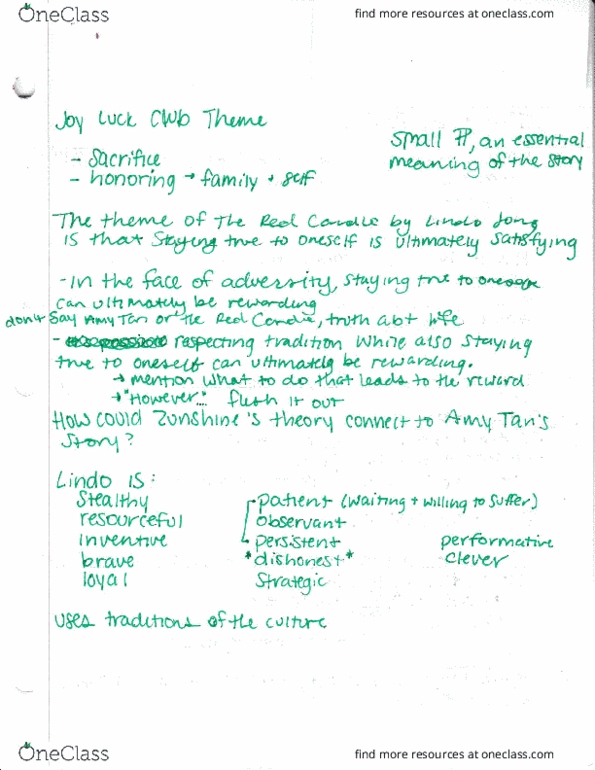 OneClass
find more resources at oneclass.com
Joy Luck Club Theme
small ¶, an essential
meaning of the story
- sacrifice
- honoring → family + self
The theme of The Red Candle by Lindo Jong
is that staying true to oneself is ultimately satisfying
- In the face of adversity, staying true to oneself
can ultimately be rewarding
don't say Amy Tan or The Red Candle, truth abt life
- respecting tradition while also staying
true to oneself can ultimately be rewarding.
→ mention what to do that leads to the reward
→ "However..." flush it out
How could Zunshine's theory connect to Amy Tan's
story?
Lindo is:
stealthy
resourceful
inventive
brave
loyal
patient (waiting + willing to suffer)
observant
persistent
*dishonest*
strategic
performative
clever
uses traditions of the culture
OneClass
find more resources at oneclass.com